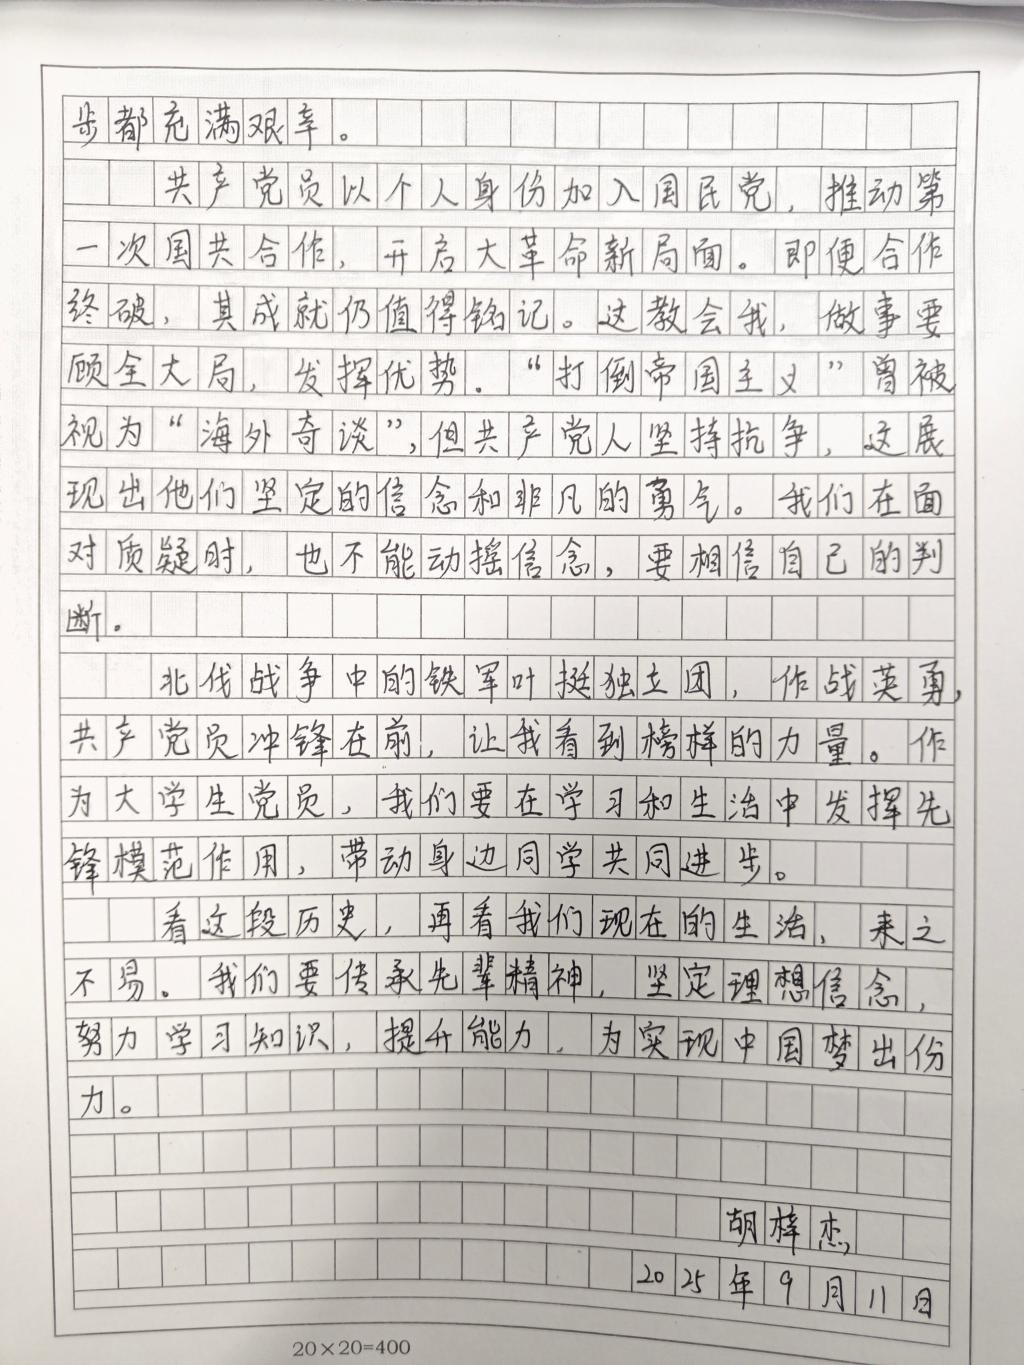 步都充满艰辛。
共产党员以个人身份加入国民党，推动第
一次国共合作，开启大革命新局面。即便合作
终破，其成就仍值得铭记。这教会我，做事要
顾全大局，发挥优势．“打倒帝国主义”曾被
视为“海外奇谈”，但共产党人坚持抗争，这展
现出他们坚定的信念和非凡的勇气。我们在面
对质疑时，也不能动摇信念，要相信自己的判
断．
北伐战争中的铁军叶挺独立团，作战英勇，
共产党员冲锋在前，让我看到榜样的力量。作
为大学生党员，我们要在学习和生活中发挥先
锋模范作用，带动身边同学共同进步。
看这段历史，再看我们现在的生活，来之
不易。我们要传承先辈精神，坚定理想信念，
努力学习知识，提升能力，为实现中国梦出份
力。
胡梓杰
2025年9月11日
20×20=400